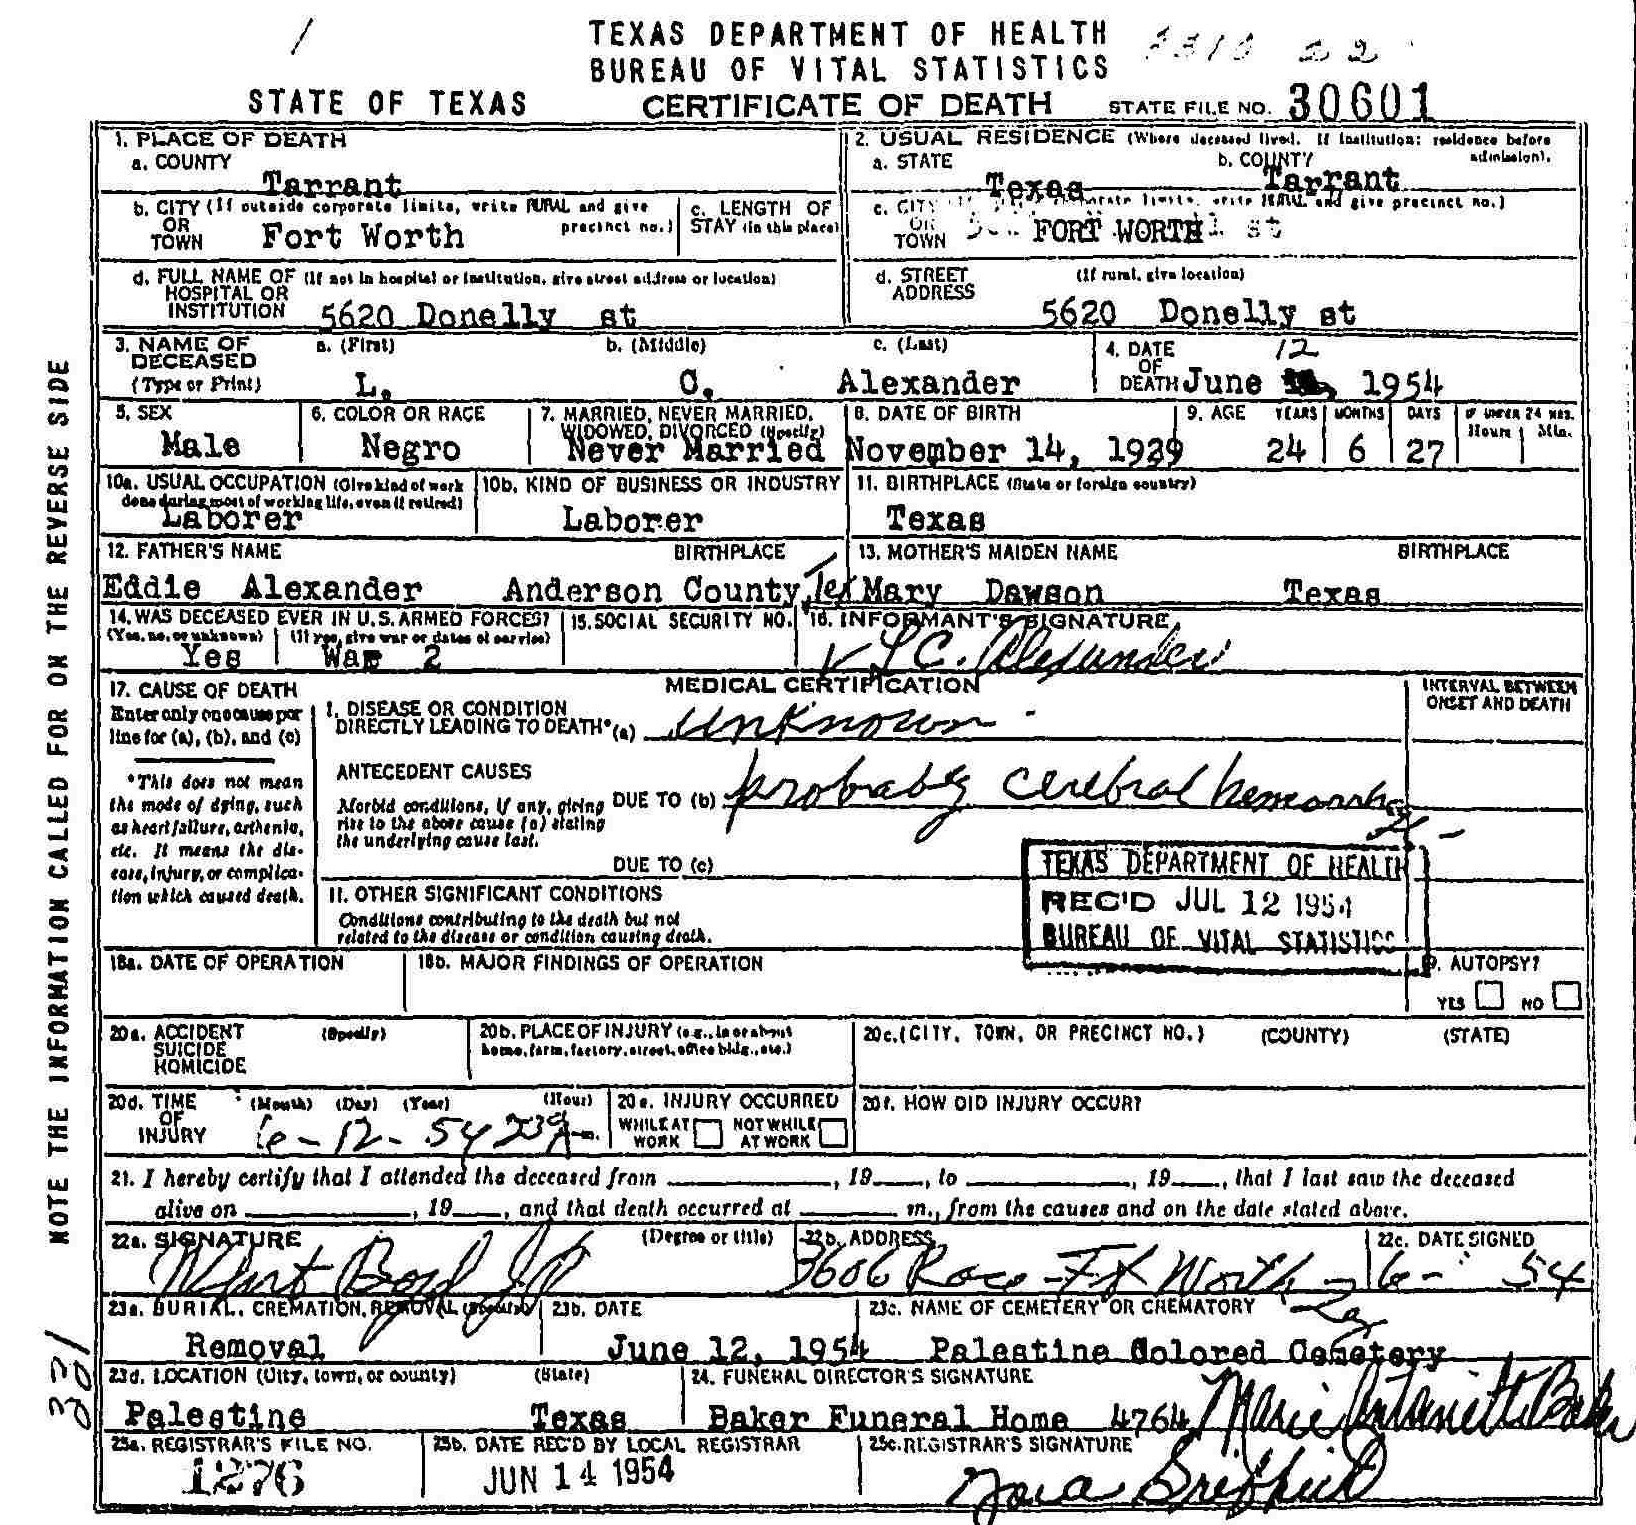 TEXAS DEPARTMENT OF HEALTH
BUREAU OF VITAL STATISTICS
STATE OF TEXAS CERTIFICATE OF DEATH STATE FILE NO. 30601
1. PLACE OF DEATH
a. COUNTY
Tarrant
2. USUAL RESIDENCE (Where deceased lived. If institution: residence before admission).
a. STATE b. COUNTY
Texas Tarrant
b. CITY (If outside corporate limits, write RURAL and give precinct no.)
OR
TOWN Fort Worth
c. LENGTH OF
STAY (in this place)
c. CITY corporate limits, write RURAL and give precinct no.)
OR
TOWN FORT WORTH st
d. FULL NAME OF (If not in hospital or institution, give street address or location)
HOSPITAL OR
INSTITUTION 5620 Donelly st
d. STREET (If rural, give location)
ADDRESS
5620 Donelly st
3. NAME OF a. (First) b. (Middle) c. (Last)
DECEASED
(Type or Print) L. C. Alexander
4. DATE 12
OF
DEATH June , 1954
5. SEX
Male
6. COLOR OR RACE
Negro
7. MARRIED, NEVER MARRIED,
WIDOWED, DIVORCED (Specify)
Never Married
8. DATE OF BIRTH
November 14, 1929
9. AGE YEARS MONTHS DAYS IF UNDER 24 HRS.
Hours Min.
24 6 27
10a. USUAL OCCUPATION (Give kind of work
done during most of working life, even if retired)
Laborer
10b. KIND OF BUSINESS OR INDUSTRY
Laborer
11. BIRTHPLACE (State or foreign country)
Texas
12. FATHER'S NAME BIRTHPLACE
Eddie Alexander Anderson County, Tex
13. MOTHER'S MAIDEN NAME BIRTHPLACE
Mary Dawson Texas
14. WAS DECEASED EVER IN U.S. ARMED FORCES?
(Yes, no, or unknown) (If yes, give war or dates of service)
Yes War 2
15. SOCIAL SECURITY NO.
16. INFORMANT'S SIGNATURE
L C. Alexander
MEDICAL CERTIFICATION
INTERVAL BETWEEN
ONSET AND DEATH
17. CAUSE OF DEATH
Enter only one cause per
line for (a), (b), and (c)
*This does not mean
the mode of dying, such
as heart failure, asthenia,
etc. It means the dis-
ease, injury, or complica-
tion which caused death.
I. DISEASE OR CONDITION
DIRECTLY LEADING TO DEATH* (a) unknown
ANTECEDENT CAUSES
Morbid conditions, if any, giving
rise to the above cause (a) stating
the underlying cause last.
DUE TO (b) probably cerebral hemorrhage
DUE TO (c)
II. OTHER SIGNIFICANT CONDITIONS
Conditions contributing to the death but not
related to the disease or condition causing death.
TEXAS DEPARTMENT OF HEALTH
REC'D JUL 12 1954
BUREAU OF VITAL STATISTICS
18a. DATE OF OPERATION
18b. MAJOR FINDINGS OF OPERATION
19. AUTOPSY?
YES NO
20a. ACCIDENT (Specify)
SUICIDE
HOMICIDE
20b. PLACE OF INJURY (e.g., in or about
home, farm, factory, street, office bldg., etc.)
20c. (CITY, TOWN, OR PRECINCT NO.) (COUNTY) (STATE)
20d. TIME (Month) (Day) (Year) (Hour)
OF
INJURY 6-12-54
20e. INJURY OCCURRED
WHILE AT NOT WHILE
WORK AT WORK
20f. HOW DID INJURY OCCUR?
21. I hereby certify that I attended the deceased from , 19 , to , 19 , that I last saw the deceased
alive on , 19 , and that death occurred at m., from the causes and on the date stated above.
22a. SIGNATURE (Degree or title)
Boyd JP
22b. ADDRESS
3606 Race Ft Worth
22c. DATE SIGNED
6- 54
23a. BURIAL, CREMATION, REMOVAL (Specify)
Removal
23b. DATE
June 12, 1954
23c. NAME OF CEMETERY OR CREMATORY
Palestine Colored Cemetery
23d. LOCATION (City, town, or county) (State)
Palestine Texas
24. FUNERAL DIRECTOR'S SIGNATURE
Baker Funeral Home 4764 Marie Antoinette Baker
25a. REGISTRAR'S FILE NO.
1276
25b. DATE REC'D BY LOCAL REGISTRAR
JUN 14 1954
25c. REGISTRAR'S SIGNATURE
NOTE THE INFORMATION CALLED FOR ON THE REVERSE SIDE